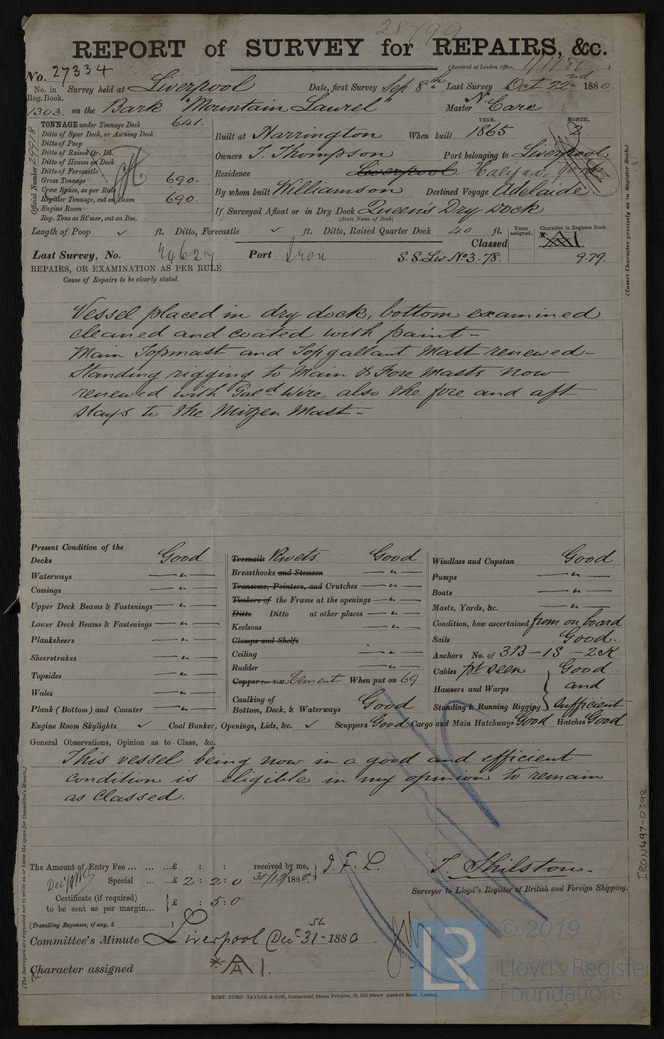 28799
REPORT of SURVEY for REPAIRS, &c.
(Received at London Office,
No. 27334
No. in Reg. Book. Survey held at Liverpool Date, first Survey Sep 8th Last Survey Oct 22nd 1880
1303. on the Bark "Mountain Laurel" Master N. Care
TONNAGE under Tonnage Deck 641.
Ditto of Spar Deck, or Awning Deck
Ditto of Poop
Ditto of Raised Qr. Dk.
Ditto of Houses on Deck
Ditto of Forecastle
Gross Tonnage 690.
Crew Space, as per Rule
Register Tonnage, cut on Beam 690
Engine Room
Reg. Tons as 82 mer, cut on Bm.
Official Number
Built at Warrington When built YEAR. 1865 MONTH. 2
Owners T. Thompson Port belonging to Liverpool
Residence Liverpool Halifax,
By whom built Williamson Destined Voyage Adelaide
If Surveyed Afloat or in Dry Dock Queen's Dry Dock
(State Name of Dock)
Length of Poop ✓ ft. Ditto, Forecastle ✓ ft. Ditto, Raised Quarter Deck 40 ft.
Classed Years assigned. Character in Register Book. *AA1
Last Survey, No. Port Iron S.S. Liv. No 3-78. 9.79
REPAIRS, OR EXAMINATION AS PER RULE
Cause of Repairs to be clearly stated.
(Insert Character precisely as in Register Book.)
Vessel placed in dry dock, bottom examined
cleaned and coated with paint-
Main Topmast and Topgallant Mast renewed-
Standing rigging to Main & Fore Masts now
renewed with Gald Wire, also the fore and aft
stays to the Mizzen Mast-
Present Condition of the
Decks Good
Waterways — " —
Comings — " —
Upper Deck Beams & Fastenings — " —
Lower Deck Beams & Fastenings — " —
Planksheers — " —
Sheerstrakes — " —
Topsides — " —
Wales — " —
Plank (Bottom) and Counter — " —
Treenails Rivets Good
Breasthooks and Stemson — " —
Transoms, Pointers, and Crutches — " —
Timbers of the Frame at the openings — " —
Ditto Ditto at other places — " —
Keelsons — " —
Clamps and Shelfs
Ceiling — " —
Rudder — " —
Copper or Y.M. Cement When put on 69
Caulking of Bottom, Deck, & Waterways Good
Windlass and Capstan Good
Pumps — " —
Boats — " —
Masts, Yards, &c. — " —
Condition, how ascertained from on board
Sails Good.
Anchors No. of 3B - 1S - 2K
Cables not seen Good
Hawsers and Warps and
Standing & Running Rigging Sufficient
Engine Room Skylights ✓ Coal Bunker, Openings, Lids, &c. ✓ Scuppers Good Cargo and Main Hatchways Good Hatches Good
General Observations, Opinion as to Class, &c.
This vessel being now in a good and efficient
condition is eligible in my opinion to remain
as classed.
The Amount of Entry Fee ... ... ... £ : : received by me,
Special ... £ 2 : 2 : 0 1880
Certificate (if required) to be sent as per margin... £ : 5 : 0
T. Shilston.
Surveyor to Lloyd's Register of British and Foreign Shipping.
(Travelling Expenses, if any, £ )
Committee's Minute Liverpool Decr 31st 1880
Character assigned *AA 1.
(The Surveyors are requested not to write on or below the space for Committee's Minute.)
IRON497-0392
© 2019
LR Lloyd's Register
Foundation